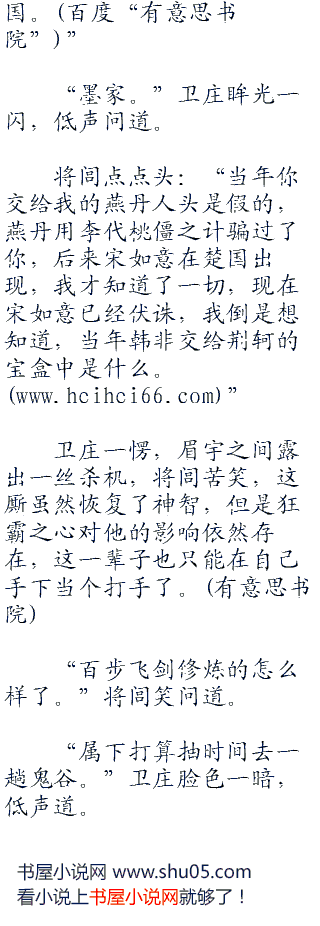 国。(百度“有意思书
院”)”
“墨家。”卫庄眸光一
闪，低声问道。
将闾点点头：“当年你
交给我的燕丹人头是假的，
燕丹用李代桃僵之计骗过了
你，后来宋如意在楚国出
现，我才知道了一切，现在
宋如意已经伏诛，我倒是想
知道，当年韩非交给荆轲的
宝盒中是什么。
(www.hcihci66.com)”
卫庄一愣，眉宇之间露
出一丝杀机，将闾苦笑，这
厮虽然恢复了神智，但是狂
霸之心对他的影响依然存
在，这一辈子也只能在自己
手下当个打手了。(有意思书
院)
“百步飞剑修炼的怎么
样了。”将闾笑问道。
“属下打算抽时间去一
趟鬼谷。”卫庄脸色一暗，
低声道。
书屋小说网 www.shu05.com
看小说上书屋小说网就够了！